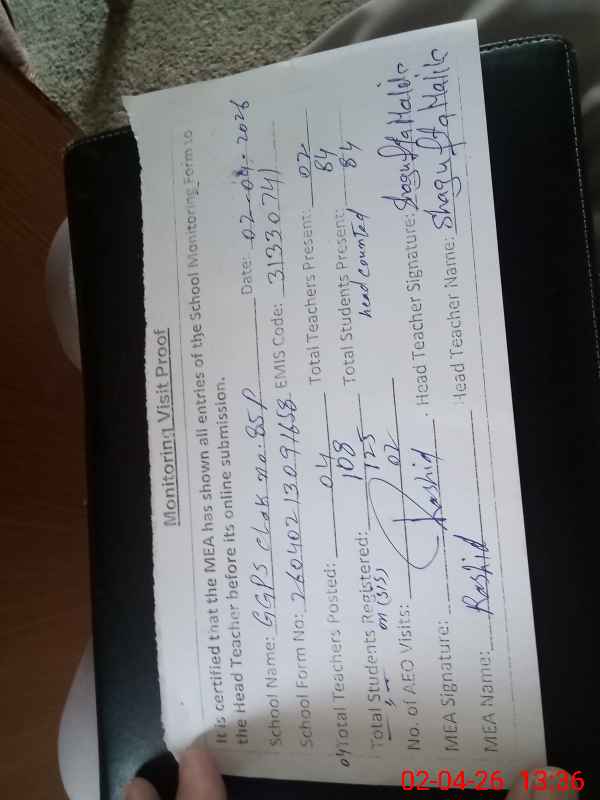 Monitoring Visit Proof
It is certified that the MEA has shown all entries of the School Monitoring Form to
the Head Teacher before its online submission.
School Name: GGPS Chak no. 85P Date: 02-04-2026
School Form No: 26040213091658 EMIS Code: 31330741
Total Teachers Posted: 04 Total Teachers Present: 02
Total Students Registered: 108 Total Students Present: 84
on (SIS) 125 head counted 84
No. of AEO Visits: 02
MEA Signature: Rashid Head Teacher Signature: Shagufta Malik
MEA Name: Rashid Head Teacher Name: Shagufta Malik
02-04-26 13:36